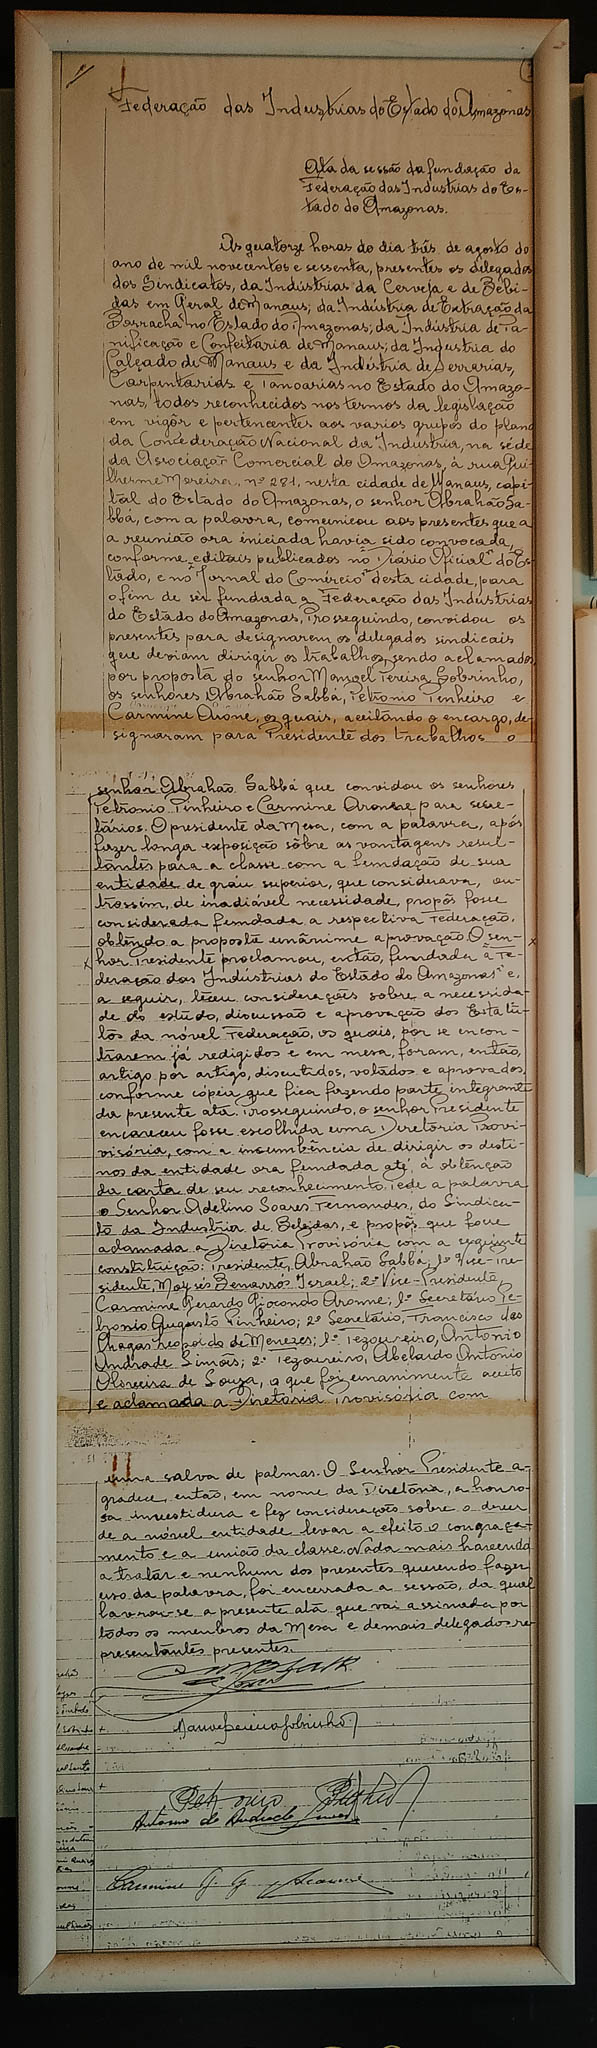 Federação das Industrias do Estado do Amazonas
Ata da sessão da fundação da
Federação das Industrias do Es-
tado do Amazonas.
As quatorze horas do dia três de agosto do
ano de mil novecentos e sessenta, presentes os delegados
dos Sindicatos, da Indústrias da Cerveja e de Bebi-
das em Geral de Manaus; da Indústria de Extração da
Borracha no Estado do Amazonas; da Indústria de Pa-
nificação e Confeitaria de Manaus; da Industria do
Calçado de Manaus e da Indústria de Serrarias,
Carpintarias e Tanoarias no Estado do Amazo-
nas, todos reconhecidos nos termos da legislação
em vigôr e pertencentes aos varios grupos do plano
da Concederação Nacional da Industria, na séde
da Associação Comercial do Amazonas, à rua Gui-
lherme Moreira, nº 281, nesta cidade de Manaus, capi-
tal do Estado do Amazonas, o senhor Abrahão Sa-
bbá, com a palavra, comunicou aos presentes que a
a reunião ora iniciada havia sido convocada,
conforme editais publicados no "Diário Oficial" do Es-
tado, e no "Jornal do Comércio" desta cidade, para
o fim de ser fundada a Federação das Industrias
do Estado do Amazonas, Prosseguindo, convidou os
presentes para designarem os delegados sindicais
que deviam dirigir os trabalhos, sendo aclamados,
por proposta do senhor Manoel Pereira Sobrinho,
os senhores Abrahão Sabbá, Petronio Pinheiro e
Carmine Arone, os quais, aceitando o encargo, de-
signaram para Presidente dos trabalhos o
senhor Abrahão Sabbá que convidou os senhores
Petronio Pinheiro e Carmine Aronne para secre-
tários. O presidente da Mesa, com a palavra, após
fazer longa exposição sôbre as vantagens resul-
tantes para a classe com a fundação de sua
entidade de gráu superior, que considerava, ou-
trossim, de inadiável necessidade, propôs fosse
considerada fundada a respectiva Federação,
obtendo a proposta unânime aprovação. O sen-
hor Presidente proclamou, então, fundada a "Fe-
deração das Indústrias do Estado do Amazonas" e,
a seguir, teceu considerações sobre a necessida-
de do estudo, discussão e aprovação dos Estatu-
tos da nóvel Federação, os quais, por se encon-
trarem já redigidos e em mesa, foram, então,
artigo por artigo, discutidos, votados e aprovados,
conforme cópia que fica fazendo parte integrante
da presente ata. Prosseguindo, o senhor Presidente
encareceu fosse escolhida uma Diretoria Provi-
visória, com a incumbência de dirigir os desti-
nos da entidade ora fundada até à obtenção
da carta de seu reconhecimento. Pede a palavra
o Senhor Adelino Soares Fernandes, do Sindica-
to da Industria de Bebidas, e propôs que fosse
aclamada a Diretoria Provisória com a seguinte
constituição: Presidente, Abrahão Sabbá; 1º Vice-Pre-
sidente, Moysés Benarrós Israel; 2º Vice-Presidente
Carmine Gerardo Giocondo Aronne; 1º Secretário Pe-
tronio Augusto Pinheiro; 2º Secretário, Francisco das
Chagas Leopoldo de Menezes; 1º Tezoureiro, Antonio
Andrade Simões; 2º Tezoureiro, Abelardo Antonio
Oliveira de Souza, o que foi unanimente aceito
e aclamada a Diretoria Provisória com
uma salva de palmas. O Senhor Presidente a-
gradece, então, em nome da Diretoria, a honro-
sa investidura e fez consideração sobre o dever
de a nóvel entidade levar a efeito o congraça-
mento e a união da classe. Nada mais havendo
a tratar e nenhum dos presentes querendo fazer
uso da palavra, foi encerrada a sessão, da qual
lavrou-se a presente ata que vai assinada por
todos os membros da Mesa e demais delegados re-
presentantes presentes.
Manoel Pereira Sobrinho
Petronio Pinheiro
Antonio de Andrade Simões
Carmine G. G. Aronne